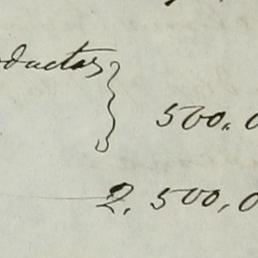 oductos } 500,0
2,500,0